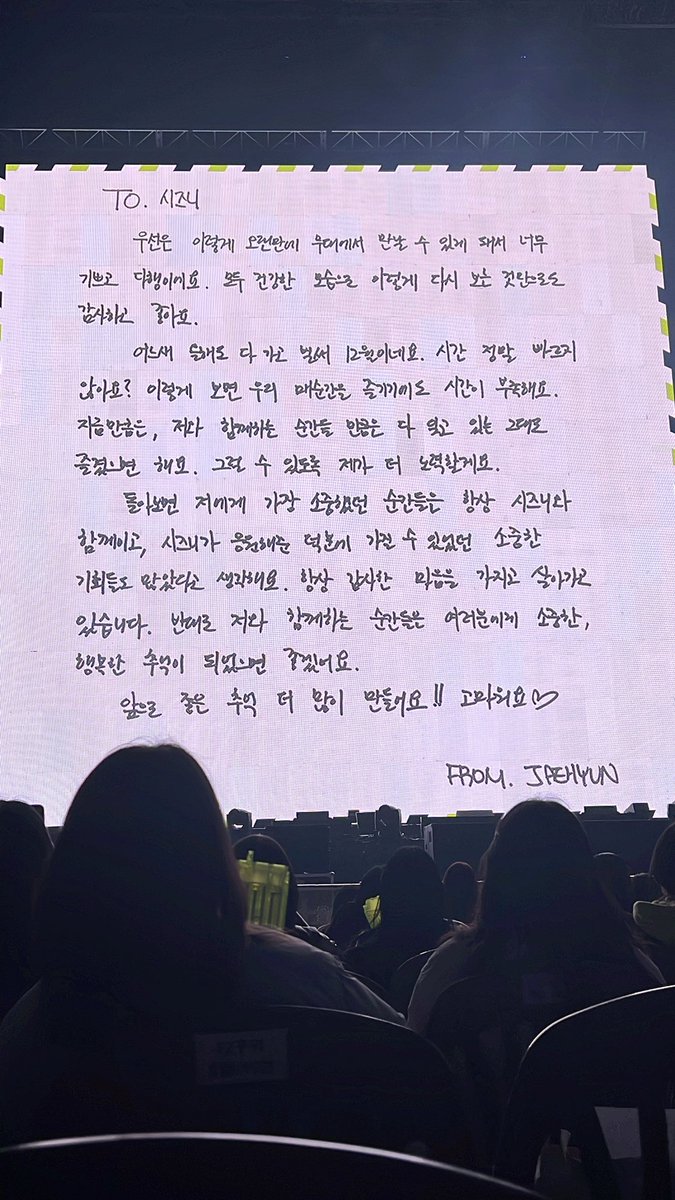 TO. 시즈니
우선은 이렇게 오랜만에 무대에서 만날 수 있게 돼서 너무
기쁘고 다행이에요. 모두 건강한 모습으로 이렇게 다시 보는 것만으로도
감사하고 좋아요.
어느새 올해도 다 가고 벌써 12월이네요. 시간 정말 빠르지
않아요? 이렇게 보면 우리 매순간을 즐기기에도 시간이 부족해요.
지금만큼은, 저와 함께하는 순간들 만큼은 다 잊고 있는 그대로
즐겼으면 해요. 그럴 수 있도록 제가 더 노력할게요.
돌아보면 저에게 가장 소중했던 순간들은 항상 시즈니와
함께이고, 시즈니가 응원해준 덕분에 가질 수 있었던 소중한
기회들도 많았다고 생각해요. 항상 감사한 마음을 가지고 살아가고
있습니다. 반대로 저와 함께하는 순간들은 여러분에게 소중한,
행복한 추억이 되었으면 좋겠어요.
앞으로 좋은 추억 더 많이 만들어요!! 고마워요♡
FROM. JAEHYUN